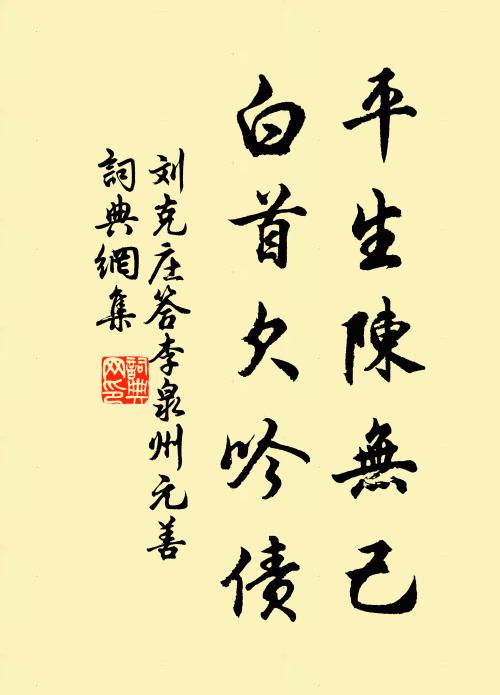 平生陳無己
白首欠吟債
刘克庄答李泉州元善
詞典網集
詞典
网印